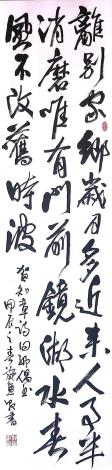 離別家鄉歲月多近來人事半
消磨唯有門前鏡湖水春
風不改舊時波
賀知章詩回鄉偶書
甲辰之春
書